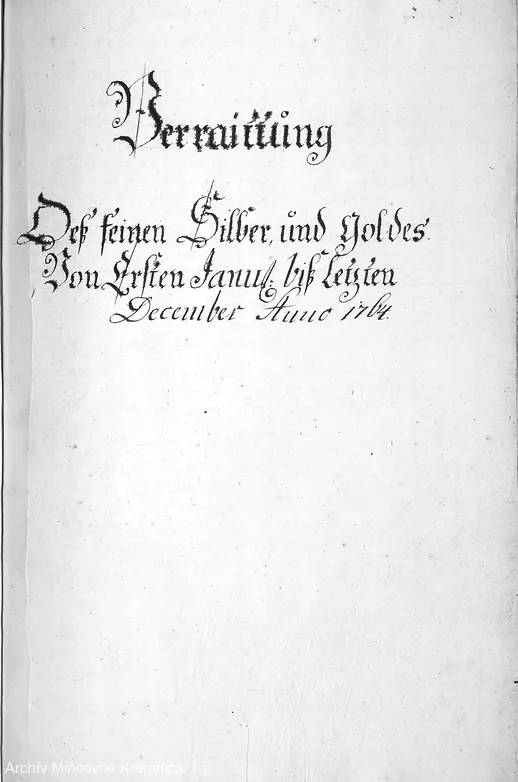 Verraittüng
Deß feinen Silber, und Goldes
Von Ersten Janua: biß Letzten
December Anno 1764.
Archív Mincovne Kremnica, š.p.